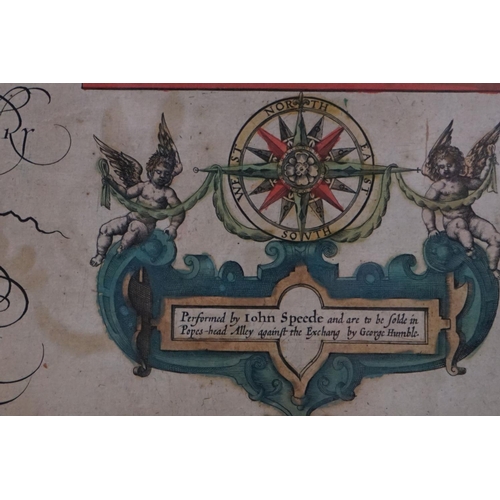 NORTH
WEST
EAST
SOVTH
Performed by Iohn Speede and are to be solde in
Popes-head Alley against the Exchang by George Humble.